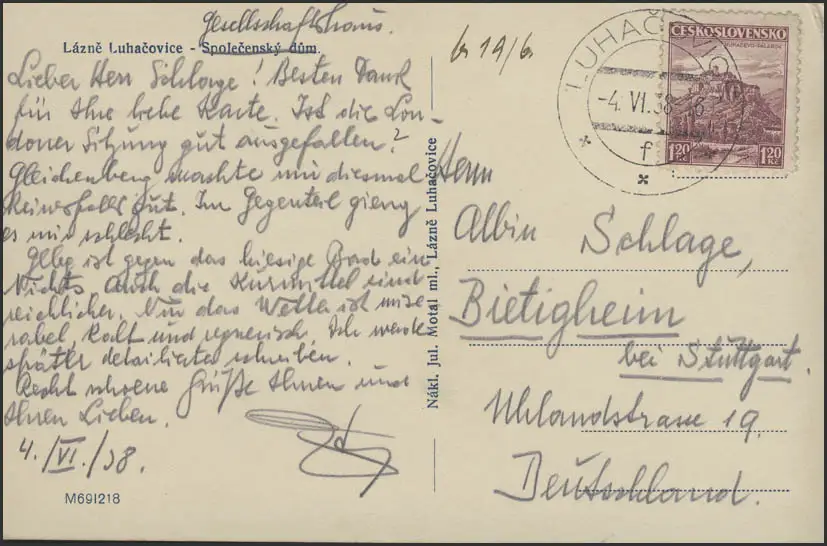 Gesellschaftshaus.
Lázně Luhačovice - Společenský dům.
Lieber Herr Schlage! Besten Dank
für Ihre liebe Karte. Ist die Lon-
doner Sitzung gut ausgefallen?
Gleichenberg machte mir diesmal
keinesfalls gut. Im Gegenteil gieng
es mir schlecht.
Glbg ist gegen das hiesige Bad ein
Nichts. Auch die Kurmittel sind
reichlicher. Nur das Wetter ist mise
rabel, kalt und regnerisch. Ich werde
später detailierter schreiben.
Recht schoene Grüße Ihnen und
Ihren Lieben.
4./VI./38.
M691218
Nákl. Jul. Motal ml., Lázně Luhačovice
19/6
LUHAČOVICE
-4.VI.38
f
ČESKOSLOVENSKO
1.20
Kč
1.20
Kč
Herrn
Albin Schlage,
Bietigheim
bei Stuttgart.
Uhlandstrasse 19.
Deutschland.